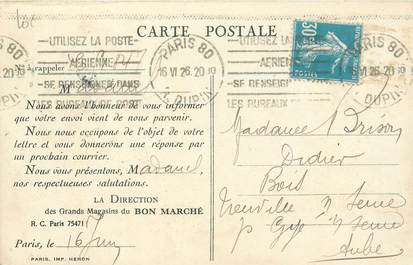 lot
CARTE POSTALE
UTILISEZ LA POSTE
AÉRIENNE
SE RENSEIGNER DANS
LES BUREAUX DE POSTE
PARIS 80
16 VI 26. 20
R. DUPIN
UTILISEZ LA POSTE
AÉRIENNE
SE RENSEIGN
LES BUREAUX
PARIS 80
16 VI 26. 20
R. DUPIN
30
Nº à rappeler
M
Nous avons l'honneur de vous informer
que votre envoi vient de nous parvenir.
Nous nous occupons de l'objet de votre
lettre et vous donnerons une réponse par
un prochain courrier.
Nous vous présentons, Madame,
nos respectueuses salutations.
LA DIRECTION
des Grands Magasins du BON MARCHÉ
R. C. Paris 75471
Paris, le 16 Juin
PARIS, IMP. HERON
Madame Brison
Didier
Bois
Neuville s/ Seine
p. Gyé s/ Seine
Aube